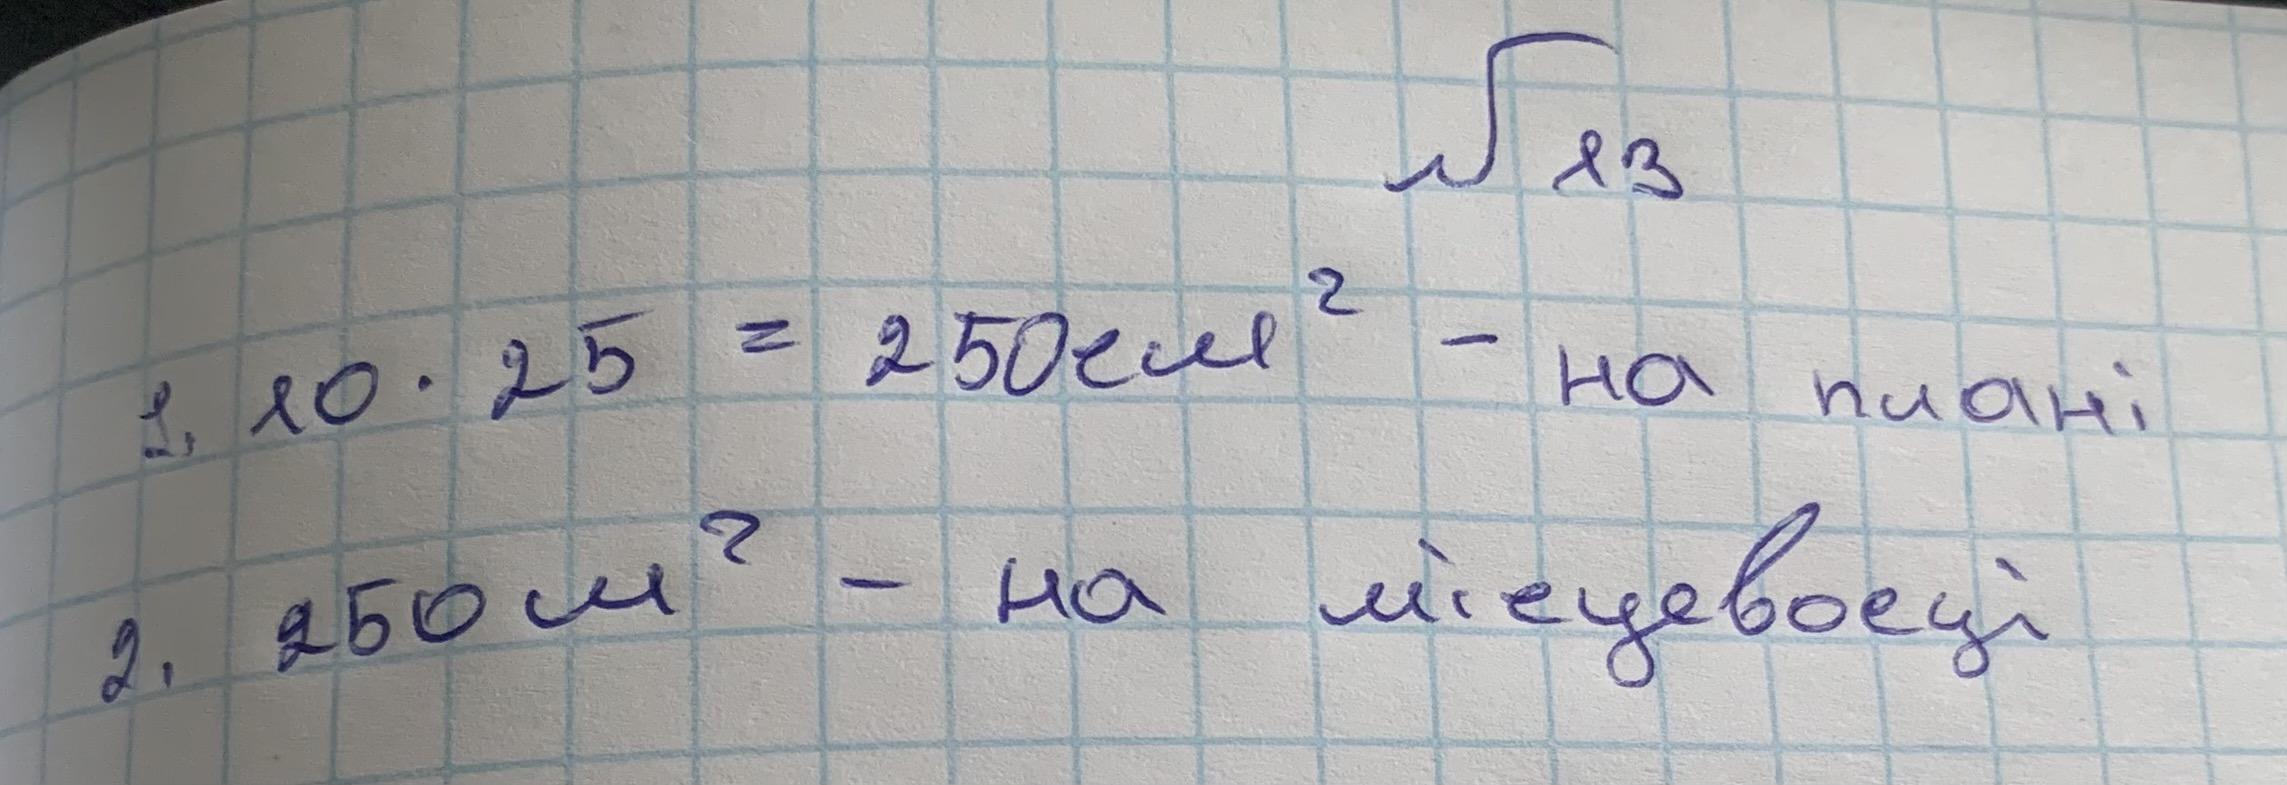 √13
1. 10 · 25 = 250см² - на плані
2. 250 м² - на місцевосці